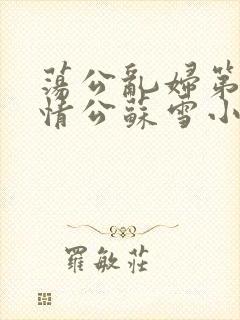 荡公亂婦第
情公蘇雪小
羅敏莊